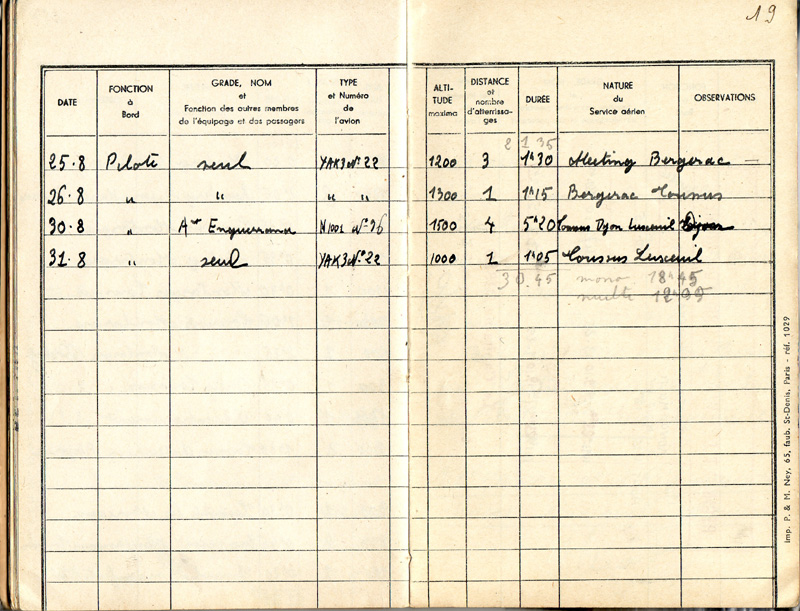 19
DATE FONCTION à Bord GRADE, NOM et Fonction des autres membres de l'équipage et des passagers TYPE et Numéro de l'avion ALTI-TUDE maxima DISTANCE et nombre d'atterrissa-ges DURÉE NATURE du Service aérien OBSERVATIONS
2 1 35
25.8 Pilote seul YAK3 N°22 1200 3 1h30 Meeting Bergerac —
26.8 " " " " 1300 1 1h15 Bergerac Toussus
30.8 " Enguerrand N1001 N°36 1500 4 5h20 Toussus Dijon Luxeuil Dijon
31.8 " seul YAK3 N°22 1000 1 1h05 Toussus Luxeuil
30.45 mono 18h45
12h
Imp. P. & M. Ney, 65, faub. St-Denis, Paris - réf. 1029